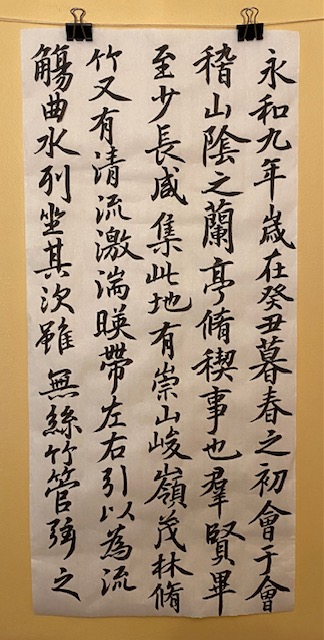 永和九年歲在癸丑暮春之初會于會
稽山陰之蘭亭脩稧事也羣賢畢
至少長咸集此地有崇山峻嶺茂林脩
竹又有清流激湍暎帶左右引以為流
觴曲水列坐其次雖無絲竹管弦之